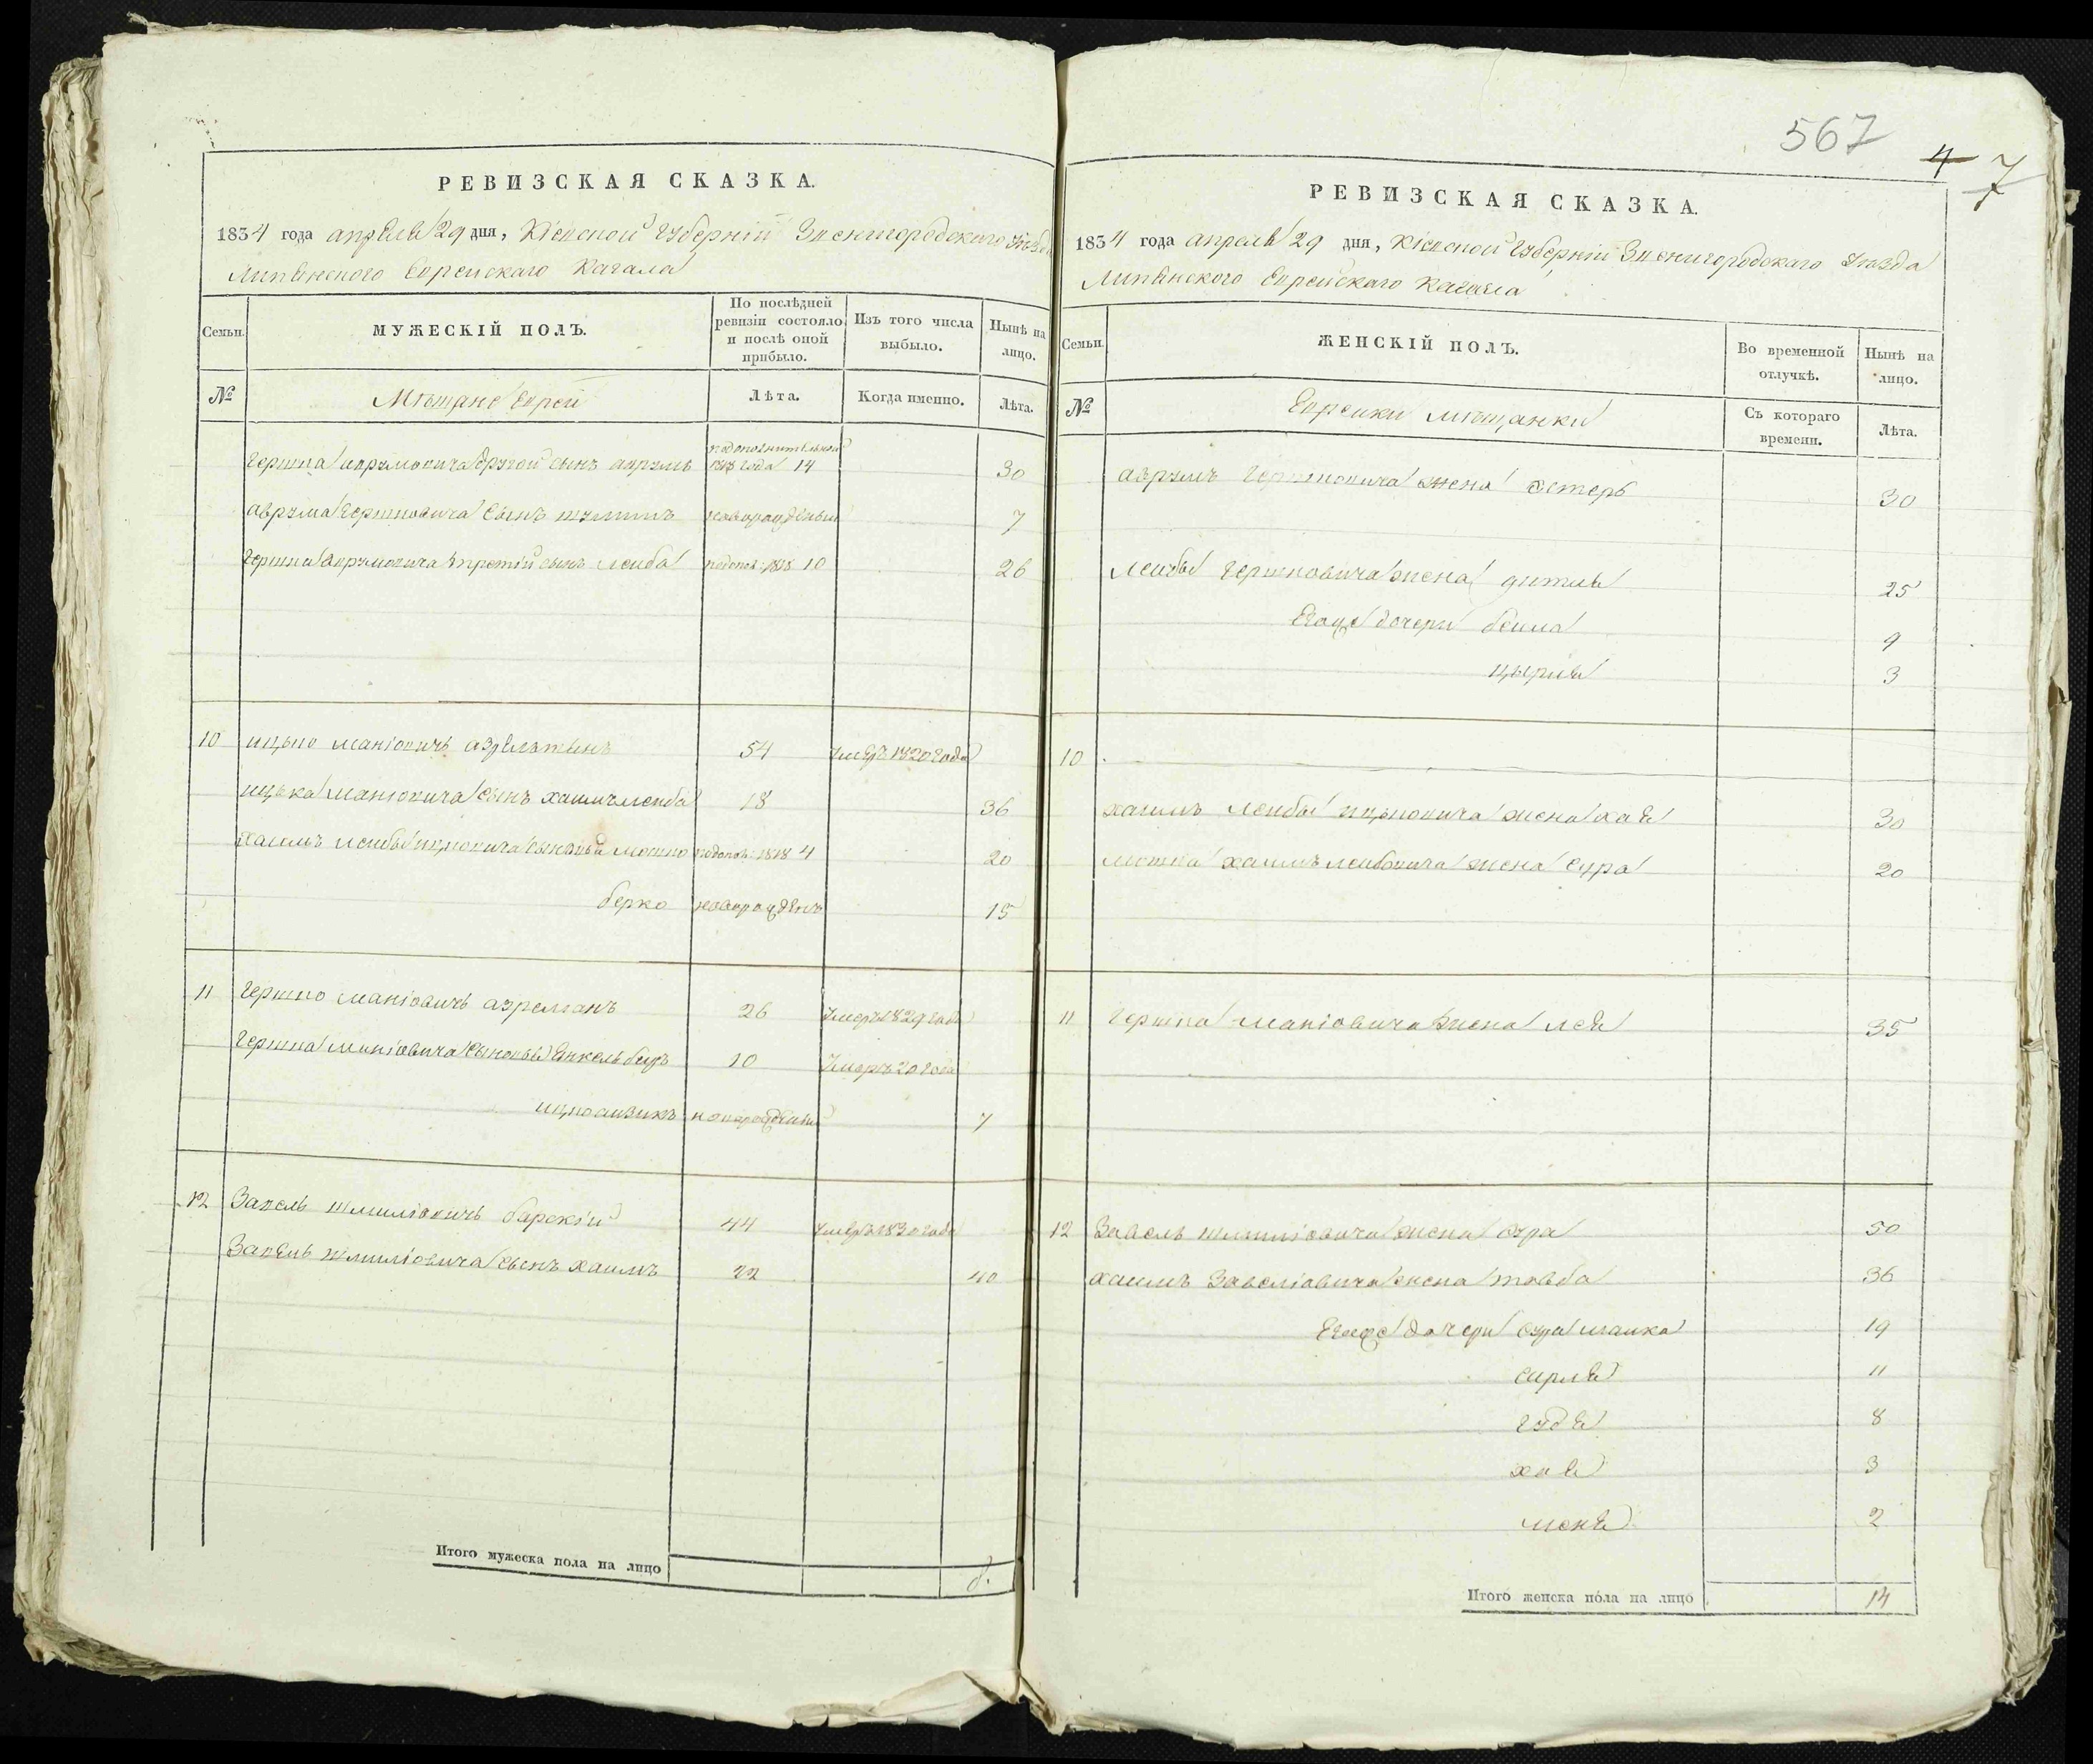 567
4 7
РЕВИЗСКАЯ СКАЗКА.
1834 года апреля 29 дня, Кіевской Губерніи Звенигородского Уѣзда
Лисянского Еврейскаго Кагала
Семьи.
МУЖЕСКІЙ ПОЛЪ.
По послѣдней ревизіи состояло и послѣ оной прибыло.
Изъ того числа выбыло.
Нынѣ на лицо.
№
Мѣщане Евреи
Лѣта.
Когда именно.
Лѣта.
Гершка Аврумовича другой сынъ аврумъ 1818 года 14 30
аврума Гершковича сынъ новорожденый 7
Гершка Аврумовича третій сынъ Лейба подопол: 1818 10 26
10 ицько Маніовичъ 54 умеръ 1820 года
ицька Маніовича сынъ хаимъ Лейба 18 36
хаимъ Лейбы ицковича сыновья Мошко подопол: 1818 4 20
берко новорожденъ 15
11 Гершко Маніовичъ 26 умеръ 1829 года
Гершка Маніовича сыновья Янкель 10 умеръ 20 года
ицко аизикъ новорожденый 7
12 Завель Шмиліовичъ барскій 44 умеръ 1830 года
Завель Шмиліовича сынъ хаимъ 22 40
Итого мужеска пола на лицо 8.
РЕВИЗСКАЯ СКАЗКА.
1834 года апреля 29 дня, Кіевской Губерніи Звенигородскаго Уѣзда
Лисянского Еврейскаго Кагала
Семьи.
ЖЕНСКІЙ ПОЛЪ.
Во временной отлучкѣ.
Нынѣ на лицо.
№
Еврейки мѣщанки
Съ котораго времени.
Лѣта.
аврумъ Гершковича жена Эстеръ 30
Лейбы Гершковича жена 25
Егоже дочери бейла 9
цырля 3
10
хаимъ Лейбы ицьковича жена хая 30
Мошка хаимъ Лейбовича жена Сура 20
11 Гершка Маніовича жена Лея 35
12 Завель Шмиліовича жена Сура 50
хаимъ Завеліовича жена товба 36
Егоже дочери Сура 19
сарля 11
гудя 8
хая 3
2
Итого женска пола на лицо 14